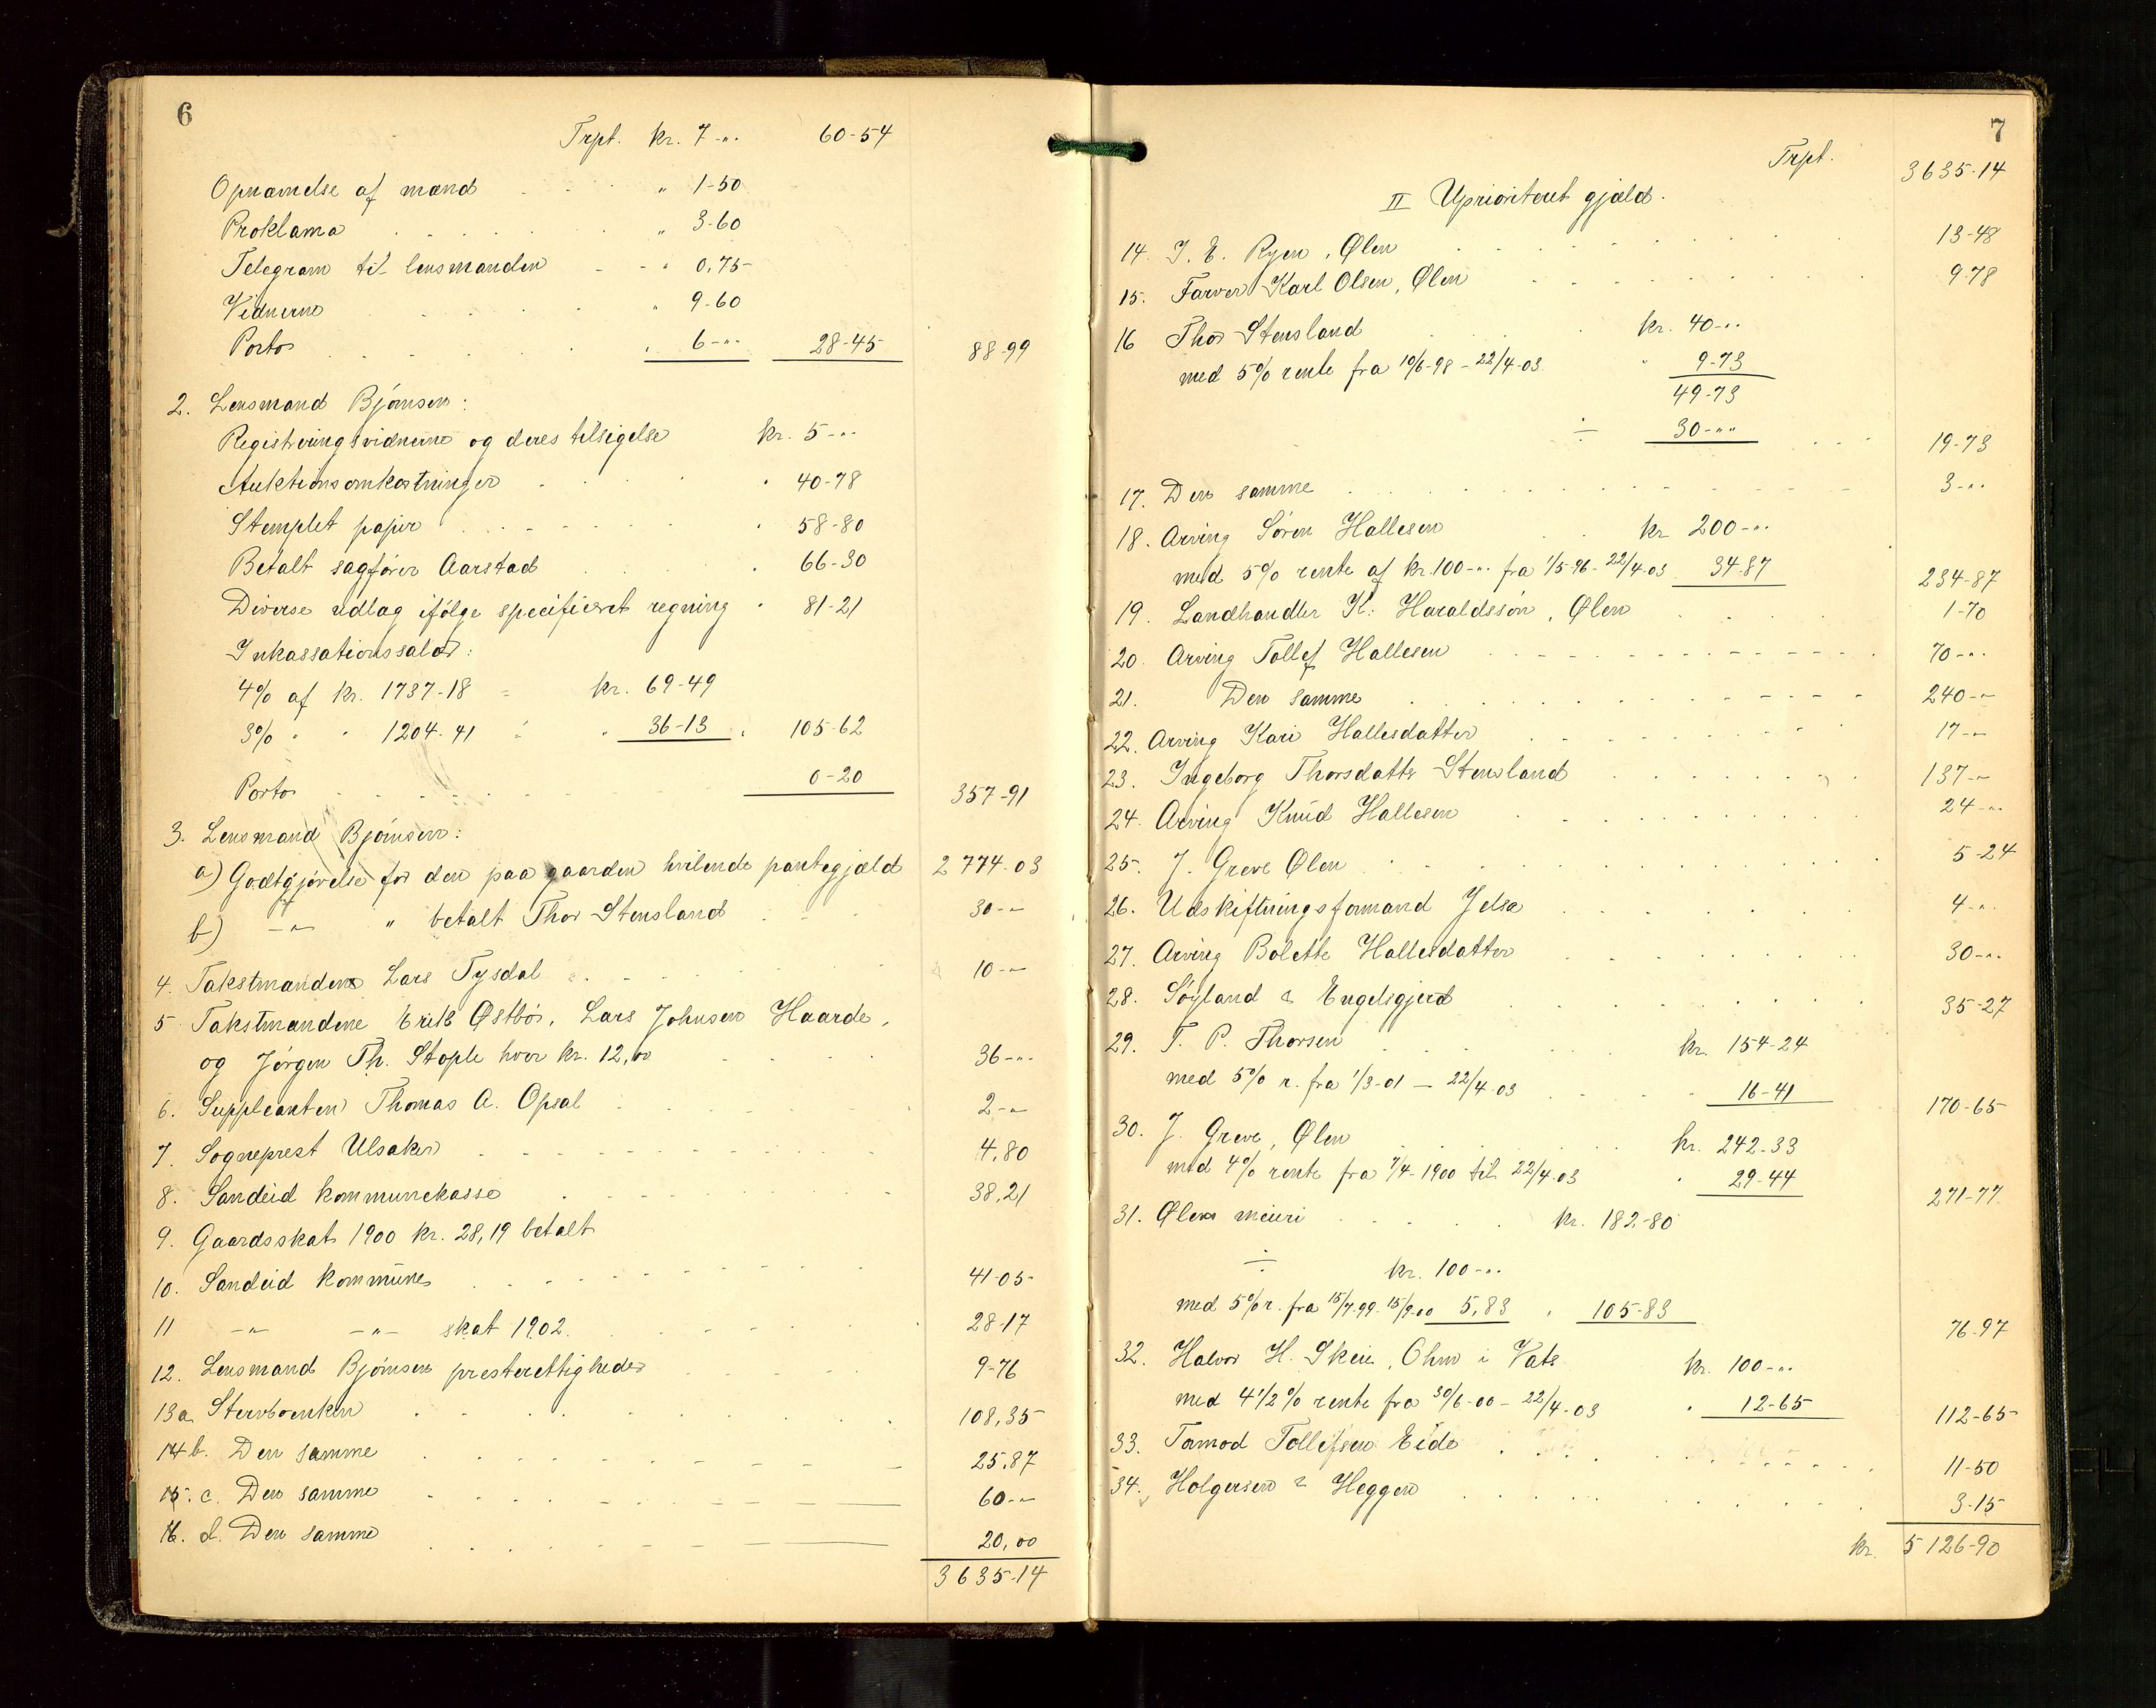 6
Trpt. kr. 7-"- 60-54
Opnævnelse af mænd " 1-50
Proklama " 3-60
Telegram til lensmanden " 0,75
Vidnerne " 9-60
Porto " 6-"- 28-45 88-99
2. Lensmand Bjørnsen:
Registreringsvidnerne og deres tilsigelse kr. 5-"-
Auktionsomkostninger " 40-78
Stemplet papir " 58-80
Betalt sagfører Aarstad " 66-30
Diverse udlæg ifølge specificeret regning " 81-21
Inkassationssalær:
4% af kr. 1737-18 = kr. 69-49
3% " " 1204-41 = " 36-13 " 105-62
Porto 0-20 357-91
3. Lensmand Bjørnsen:
a) Godtgjørelse for den paa gaarden hvilende pantegjæld 2774-03
b) -"- " betalt Thor Stensland 30-"-
4. Takstmanden Lars Tysdal 10-"-
5 Takstmændene Erik Østbø, Lars Johnsen Haarde,
og Jørgen Th. Stople hver kr. 12,00 36-"-
6. Suppleanten Thomas A. Opsal 2-"-
7. Sogneprest Ulsaker 4,80
8. Sandeid kommunekasse 38,21
9. Gaardsskat 1900 kr. 28,19 betalt
10. Sandeid kommune 41-05
11 -"- -"- skat 1902. 28-17
12. Lensmand Bjørnsen presterettigheder 9-76
13a Stervboenken 108,35
14 b. Den samme 25,87
15. c. Den samme 60-"-
16. d. Den samme 20,00
3635-14
7
Trpt. 3635-14
II Uprioriteret gjæld.
14. J. E. Ryen, Ølen 13-48
15. Farver Karl Olsen, Ølen 9-78
16 Thor Stensland kr. 40-"-
med 5% rente fra 10/6-98 - 22/4-03 " 9-73
49-73
÷ 30-"" 19-73
17. Den samme 3-"-
18. Arving Søren Hallesen kr 200-"-
med 5% rente af kr. 100-"- fra 1/5-96 - 22/4-03 34-87 234-87
19. Landhandler K. Haraldssøn, Ølen 1-70
20. Arving Tollef Hallesen 70-"-
21. Den samme 240-"-
22. Arving Kari Hallesdatter 17-"-
23. Ingeborg Thorsdatter Stensland 137-"-
24. Arving Knud Hallesen 24-"-
25. J. Greve Ølen 5-24
26. Udskiftningsformand Jelsa 4-"-
27. Arving Bolette Hallesdatter 30-"-
28. Søyland & Engelsgjerd 35-27
29. T. P. Thorsen kr. 154-24
med 5% r. fra 1/3-01 - 22/4-03 " 16-41 170-65
30. J. Greve, Ølen kr. 242-33
med 4% rente fra 7/4-1900 til 22/4-03 " 29-44 271-77
31. Ølen meieri kr. 182-80
÷ kr. 100-"-
med 5% r. fra 15/7-99 - 15/9-00 5,83 " 105-83 76-97
32. Halvor H. Skeie, Ohm i Vats kr. 100-"-
med 4 1/2 % rente fra 30/6-00 - 22/4-03 " 12-65 112-65
33. Tormod Tollefsen Eide 11-50
34. Holgersen & Heggen 3-15
kr. 5126-90